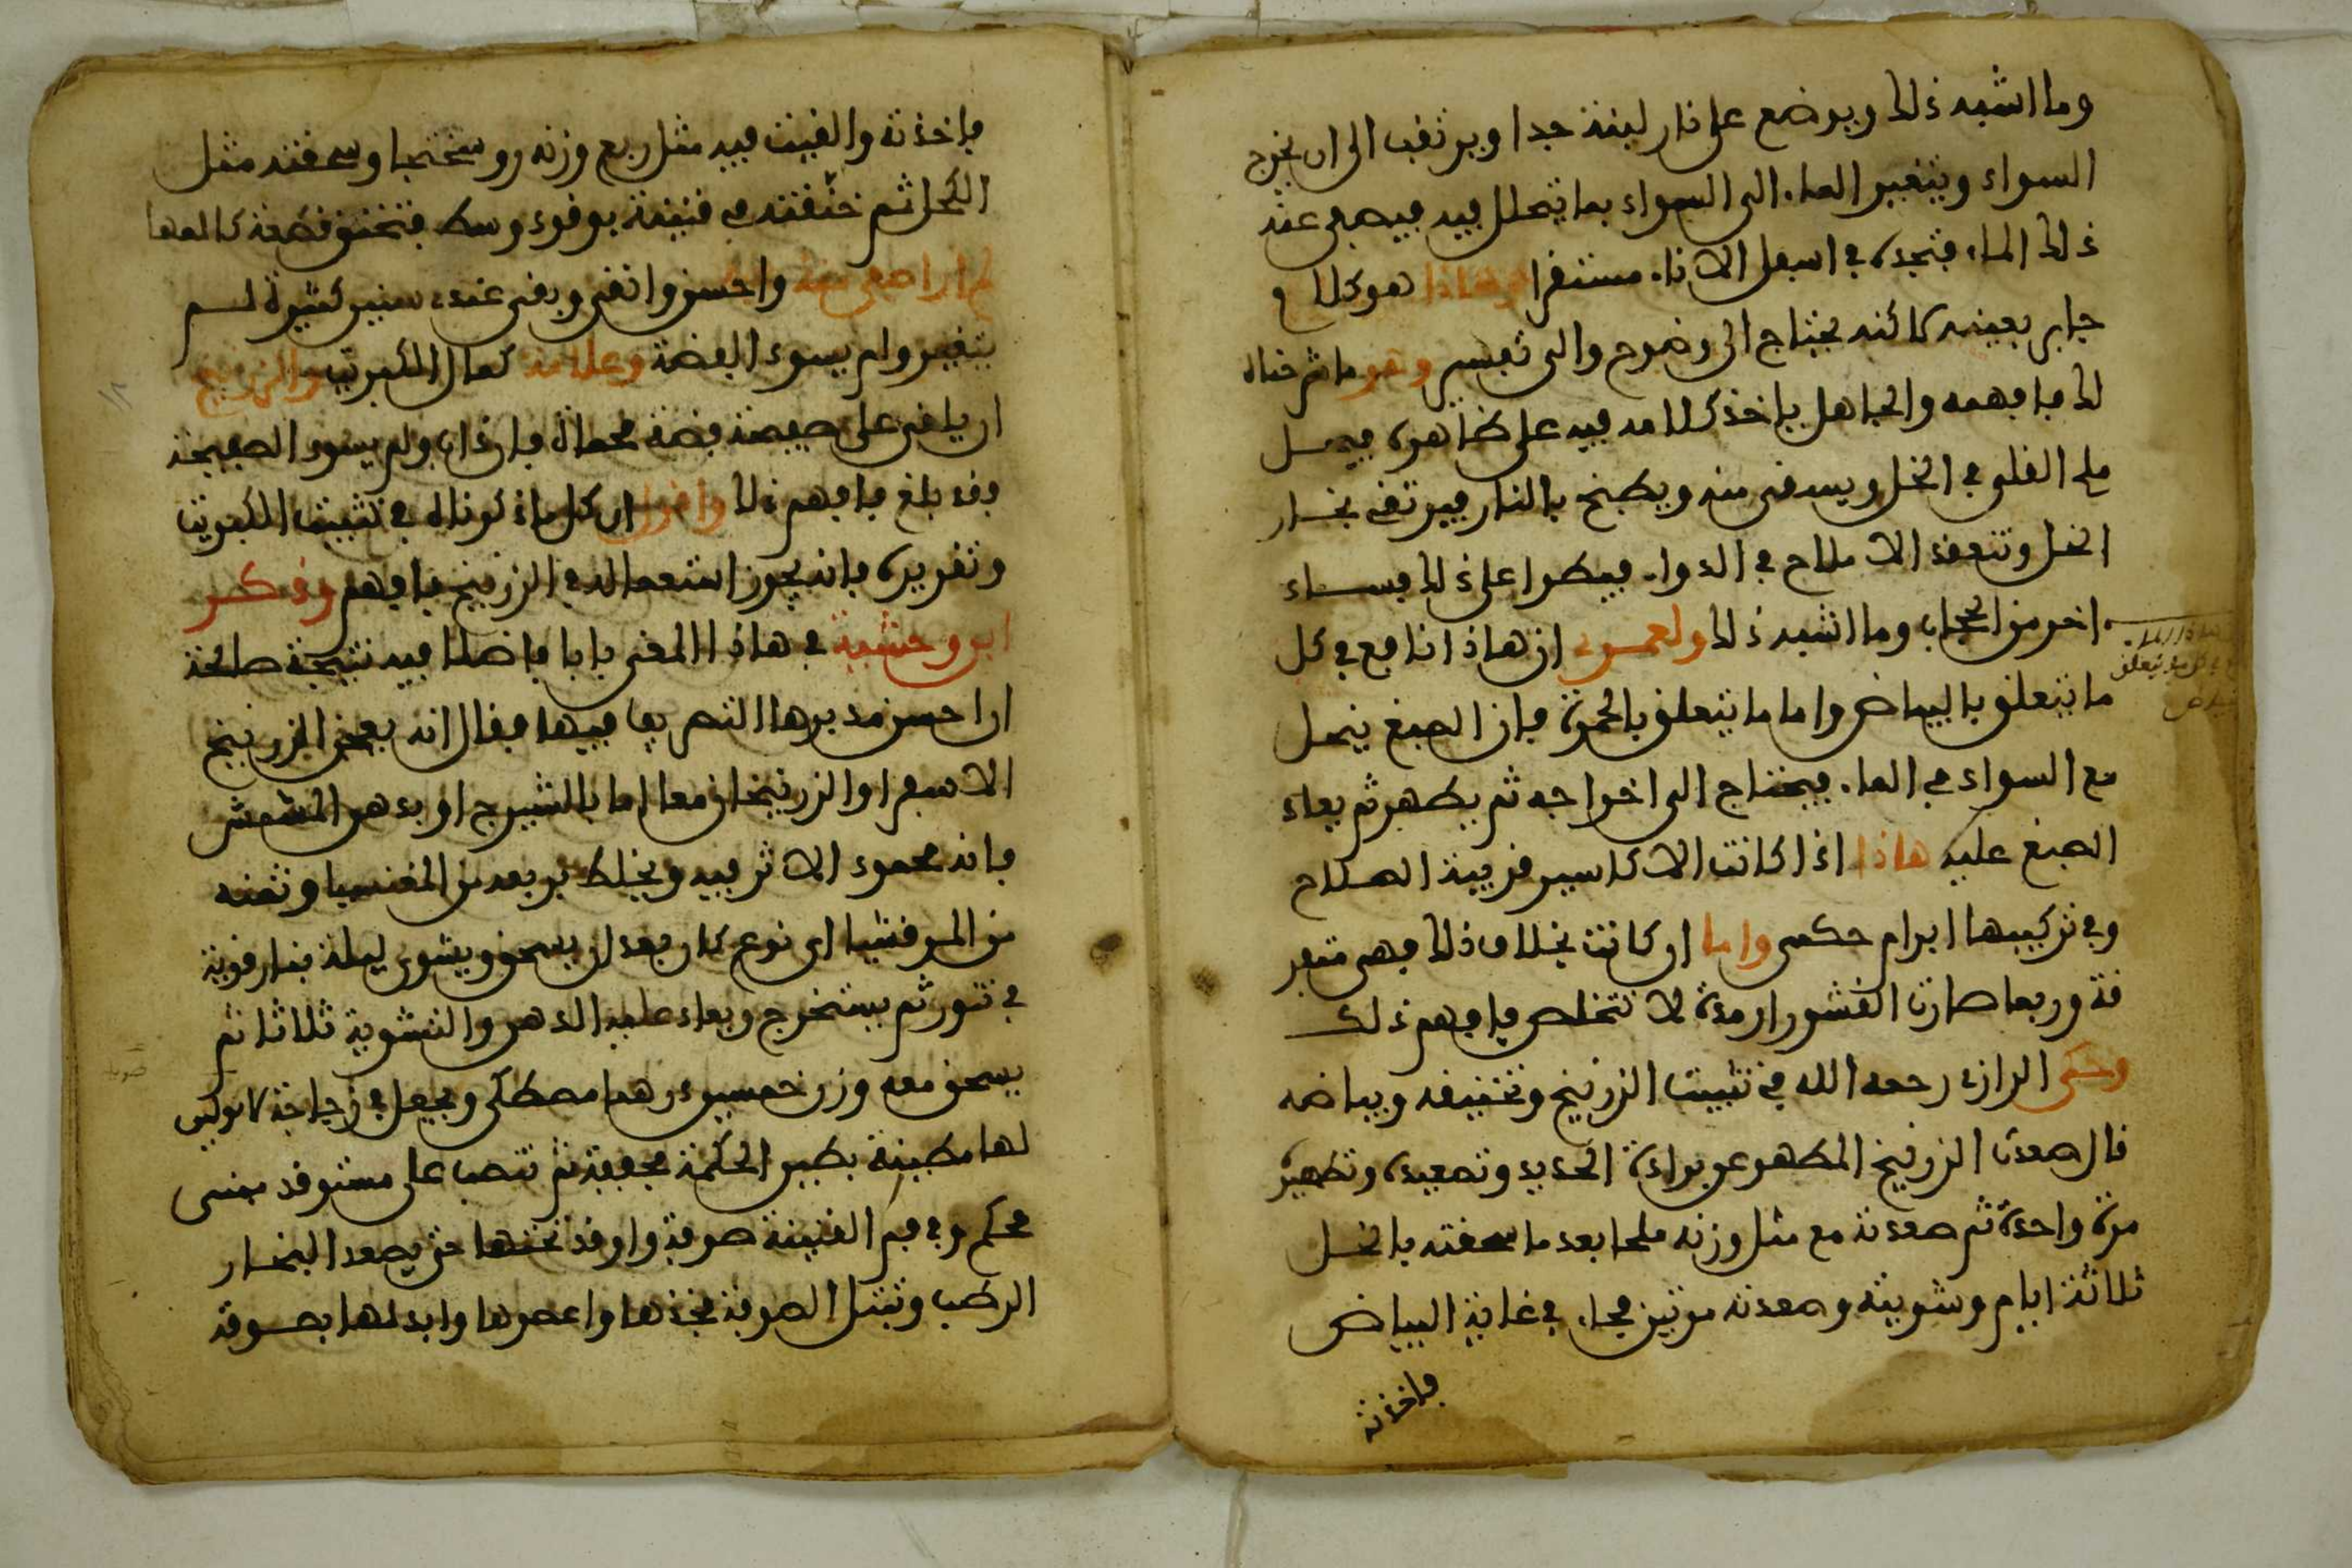 وما اشبه ذلك ويوضع على نار لينة جدا ويرتقب الى ان يخرج
السواد ويتغير الماء الى السواد بما يتحلل فيه فيصفى عنه
ذلك الماء فتجده في اسفل الاناء مستقرا وهاذا هو كلام
جابر بعينه كانه يحتاج الى وضوح والى تفسير وهو ما شرحناه
لك فافهمه والجاهل ياخذ كلامه فيه على ظاهره فيحل
ملح القلي في الخل ويسقى منه ويطبخ بالنار فيرتقى بخار
الخل وتنعقد الاملاح في الدواء فيطرا على ذلك فساد
اخر من الحجاب وما اشبه ذلك ولعمري ان هاذا نافع في كل
ما يتعلق بالبياض واما ما يتعلق بالحمرة فان الصبغ ينحل
مع السواد في الماء فيحتاج الى اخراجه ثم يطهر ثم يعاد
الصبغ عليه هاذا اذا كانت الاكاسير قريبة الصلاح
وفي تركيبها ابرام حكمي واما ان كانت بخلاف ذلك فهي متفر
قة وربما صارت القشور ارمدة لا تتخلص فافهم ذلك
وحكى الرازي رحمه الله في تثبيت الزرنيخ وتخنيقه وبياضه
قال صعدت الزرنيخ المطهر عن برادة الحديد وتصعيده وتطهيره
مرة واحدة ثم صعدته مع مثل وزنه ملحا بعد ما سحقته بالخل
ثلاثة ايام وشويته وصعدته مرتين فجاء في غاية البياض
فاخذته
فاخذته والقيت فيه مثل ربع وزنه روسختجا وسحقته مثل
الكحل ثم خنقته في قنينة بوقود وسط فتخنق قطعة كالمها
لم ار اصفى منه واحسن وانقى وبقى عنده سنين كثيرة لم
يتغير ولم يسود الفضة وعلامة كمال الكبريت والزرنيخ
ان يلقى على صفيحة فضة محماة فان ذاب ولم يسود الصفيحة
فقد بلغ فافهم ذلك واقول ان كل ما ذكرناه في تثبيت الكبريت
وتقريره فانه يجوز استعماله في الزرنيخ فافهم وذكر
ابن وحشية في هاذا المعنى بابا فاضلا فيه نتيجة صالحة
ان احسن مدبرها التصريف فيها فقال انه يعجن الزرنيخ
الاصفر او الزرنيخان معا اما بالشيرج او بدهن المشمش
فانه محمود الاثر فيه ويخلط بربعه من المغنسيا وثمنه
من المرقشيثا اي نوع كان بعد ان يسحق ويشوى ليلة بنار قوية
في تنور ثم يستخرج ويعاد عليه الدهن والتشوية ثلاثا ثم
يسحق معه وزن خمسين درهما مصطكى ويجعل في زجاجة
لها مطينة بطين الحكمة مجففة ثم تنصب على مستوقد مبنى
محكم وفي فم القنينة صوفة واوقد تحتها حتى يصعد البخار
الرطب وتبتل الصوفة فخذها واعصرها وابدلها بصوفة